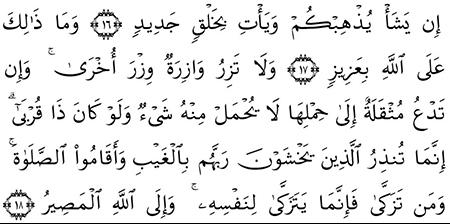 إِن يَشَأۡ يُذۡهِبۡكُمۡ وَيَأۡتِ بِخَلۡقٖ جَدِيدٖ ١٦ وَمَا ذَٰلِكَ
عَلَى ٱللَّهِ بِعَزِيزٖ ١٧ وَلَا تَزِرُ وَازِرَةٞ وِزۡرَ أُخۡرَىٰۚ وَإِن
تَدۡعُ مُثۡقَلَةٌ إِلَىٰ حِمۡلِهَا لَا يُحۡمَلۡ مِنۡهُ شَيۡءٞ وَلَوۡ كَانَ ذَا قُرۡبَىٰٓۗ
إِنَّمَا تُنذِرُ ٱلَّذِينَ يَخۡشَوۡنَ رَبَّهُم بِٱلۡغَيۡبِ وَأَقَامُواْ ٱلصَّلَوٰةَۚ
وَمَن تَزَكَّىٰ فَإِنَّمَا يَتَزَكَّىٰ لِنَفۡسِهِۦۚ وَإِلَى ٱللَّهِ ٱلۡمَصِيرُ ١٨